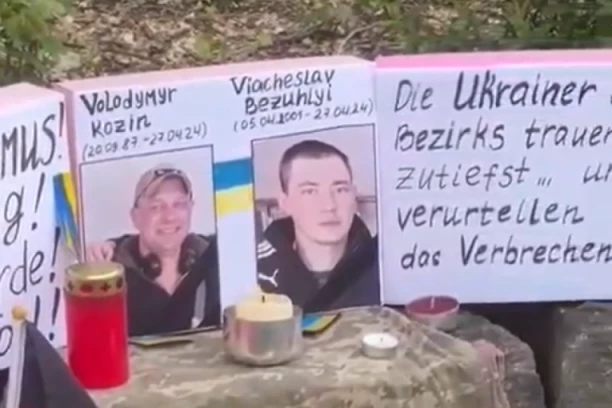 MUS!
g!
rde!
!
Volodymyr
Kozin
(20.09.87-27.04.24)
Viacheslav
Bezuhlyi
(05.04.2001-27.04.24)
Die Ukrainer
Bezirks trauer
zutiefst... un
verurteilen
das Verbrechen